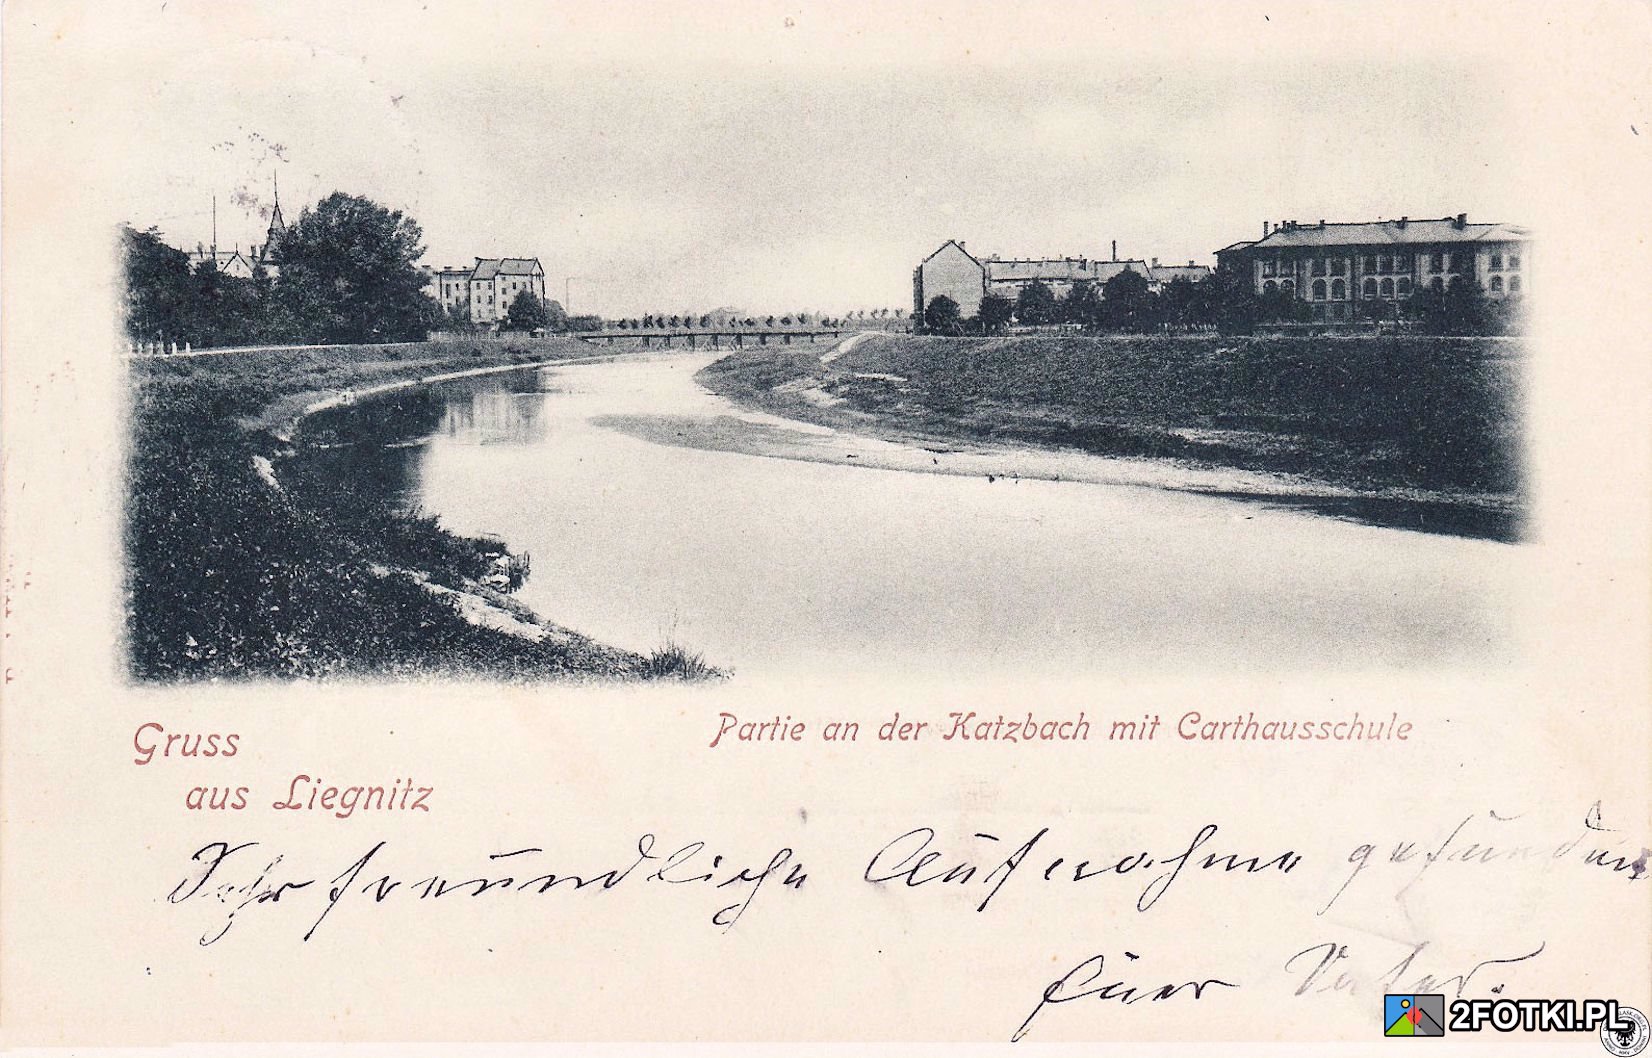 Gruss
aus Liegnitz
Partie an der Katzbach mit Carthausschule
Sehr freundliche Aufnahme gefunden
Euer Vater.
2FOTKI.PL